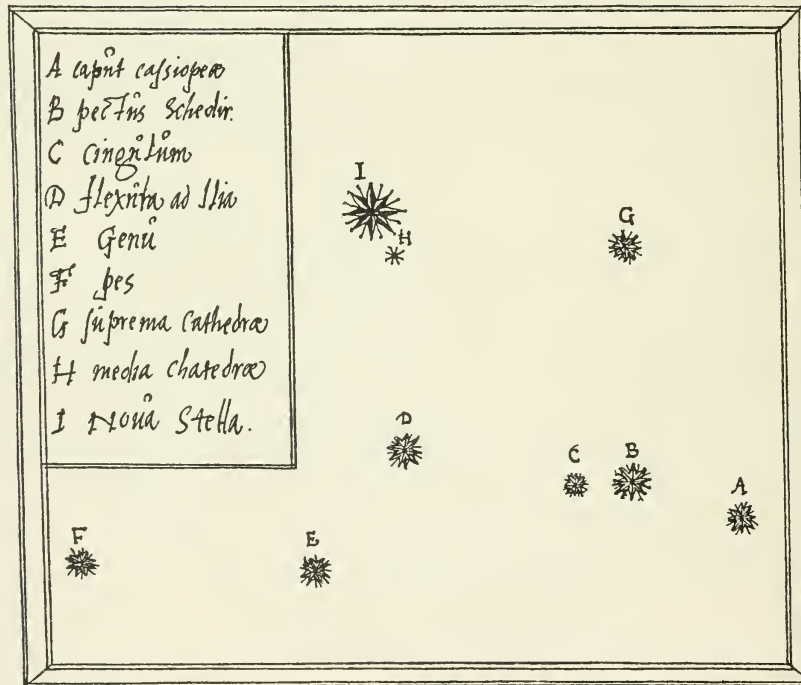 A caput cassiopeæ
B pectus Schedir.
C cingulum
D flexura ad Ilia
E Genu
F pes
G suprema Cathedræ
H media chatedræ
I Noua Stella.
I
H
G
D
C
B
A
F
E